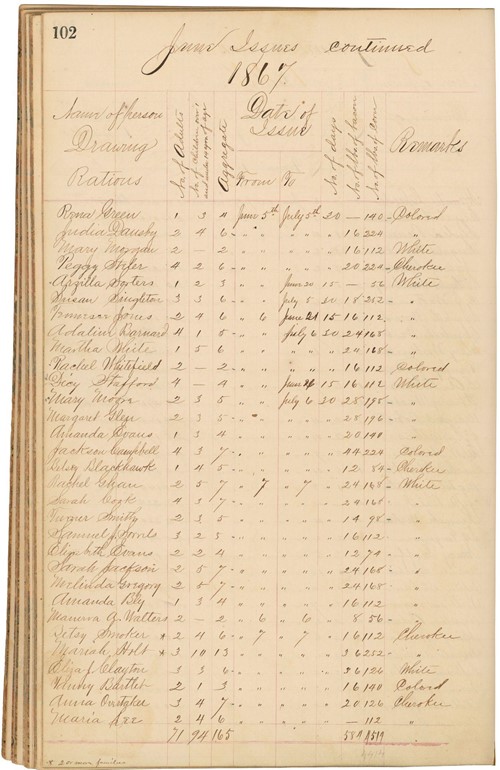 102
June Issues continued
1867.
Name of person Drawing Rations No. of Adults No. of children over and under 14 yrs of age Aggregate Date of Issue From To No. of days No. of lbs of bacon No. of lbs of corn Remarks
Green 1 3 4 June 5th July 5th 20 — 140 Colored
India Dansby 2 4 6 " " " " " 16 224 "
Mary Morgan 2 — 2 " " " " " 16 112 White
Peggy 4 2 6 " " " " " 20 224 Cherokee
Porters 1 2 3 " " June 20 15 — 56 White
Susan Singleton 3 3 6 " " July 5 30 18 252 "
Jones 2 4 6 " 6 June 21 15 16 112 "
Adaline Barnard 4 1 5 " " July 6 30 24 168 "
Martha White 1 5 6 " " " " " 24 168 "
Rachel Whitefield 2 — 2 " " " " " 16 112 Colored
Stafford 4 — 4 " " June 15 16 112 White
Mary Moore 2 3 5 " " July 6 30 28 198 "
Margaret Glen 2 3 5 " " " " " 28 196 "
Amanda Evans 1 3 4 " " " " " 20 140 "
Jackson Campbell 4 3 7 " " " " " 44 224 Colored
Betsy Blackhawk 1 4 5 " " " " " 12 84 Cherokee
Rachel 2 5 7 " 7 " 7 " 24 168 White
Sarah Cook 4 3 7 " " " " " 24 168 "
Smith 2 3 5 " " " " " 14 98 "
Samuel J. 3 2 5 " " " " " 16 112 "
Elizabeth Evans 2 2 4 " " " " " 12 70 "
Sarah Jackson 2 5 7 " " " " " 24 168 "
Melinda Gregory 2 5 7 " " " " " 24 168 "
Amanda Bly 1 3 4 " " " " " 16 112 "
Manerva A. Walters 2 — 2 " 6 " 6 " 8 56 "
Betsy Smoker * 2 4 6 " 7 " 7 " 16 112 Cherokee
Mariah Holt * 3 10 13 " " " " " 36 252 "
Eliza J. Clayton 3 3 6 " " " " " 36 126 White
Bartlet 2 1 3 " " " " " 16 140 Colored
Anna 3 4 7 " " " " " 20 126 Cherokee
Maria 2 4 6 " " " " " — 112 "
71 94 165
* 2 or more families